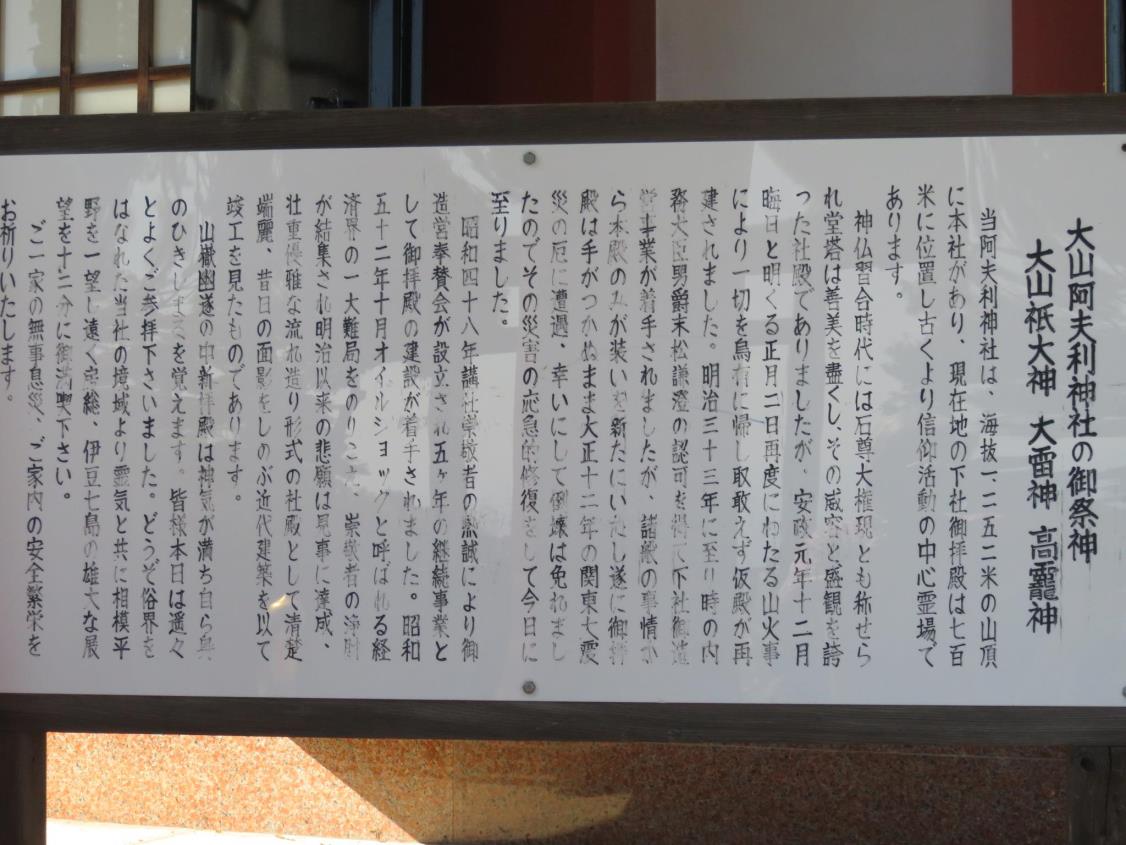 大山阿夫利神社の御祭神
大山祇大神 大雷神 高龗神
当阿夫利神社は、海抜一、二五二米の山頂
に本社があり、現在地の下社御拝殿は七百
米に位置し古くより信仰活動の中心霊場で
あります。
神仏習合時代には石尊大権現とも称せら
れ堂塔は善美を盡くし、その威容と盛観を誇
った社殿でありましたが、安政元年十二月
晦日と明くる正月二日再度にわたる山火事
により一切を烏有に帰し取敢えず仮殿が再
建されました。明治三十三年に至り時の内
務大臣男爵末松謙澄の認可を得て下社御造
営事業が着手されましたが、諸般の事情か
ら本殿のみが装いを新たにいたし遂に御拝
殿は手がつかぬまま大正十二年の関東大震
災の厄に遭遇、幸いにして倒壊は免れまし
たのでその災害の応急的修復をして今日に
至りました。
昭和四十八年講社崇敬者の熱誠により御
造営奉賛会が設立され五ヶ年の継続事業と
して御拝殿の建設が着手されました。昭和
五十二年十月オイルショックと呼ばれる経
済界の一大難局をのりこえ、崇敬者の浄財
が結集され明治以来の悲願は見事に達成、
壮重優雅な流れ造り形式の社殿として清楚
端麗、昔日の面影をしのぶ近代建築を以て
竣工を見たものであります。
山嶽幽邃の中新拝殿は神気が満ち自ら身
のひきしまるを覚えます。皆様本日は遥々
とよくご参拝下さいました。どうぞ俗界を
はなれた当社の境域より霊気と共に相模平
野を一望し遠く房総、伊豆七島の雄大な展
望を十二分に御満喫下さい。
ご一家の無事息災、ご家内の安全繁栄を
お祈りいたします。